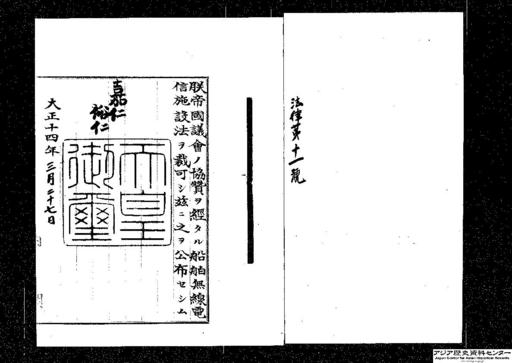 法律第十一號
朕帝國議會ノ協賛ヲ經タル船舶無線電
信施設法ヲ裁可シ茲ニ之ヲ公布セシム
嘉仁
裕仁
天皇
御璽
大正十四年三月二十七日
アジア歴史資料センター
Japan Center for Asian Historical Records